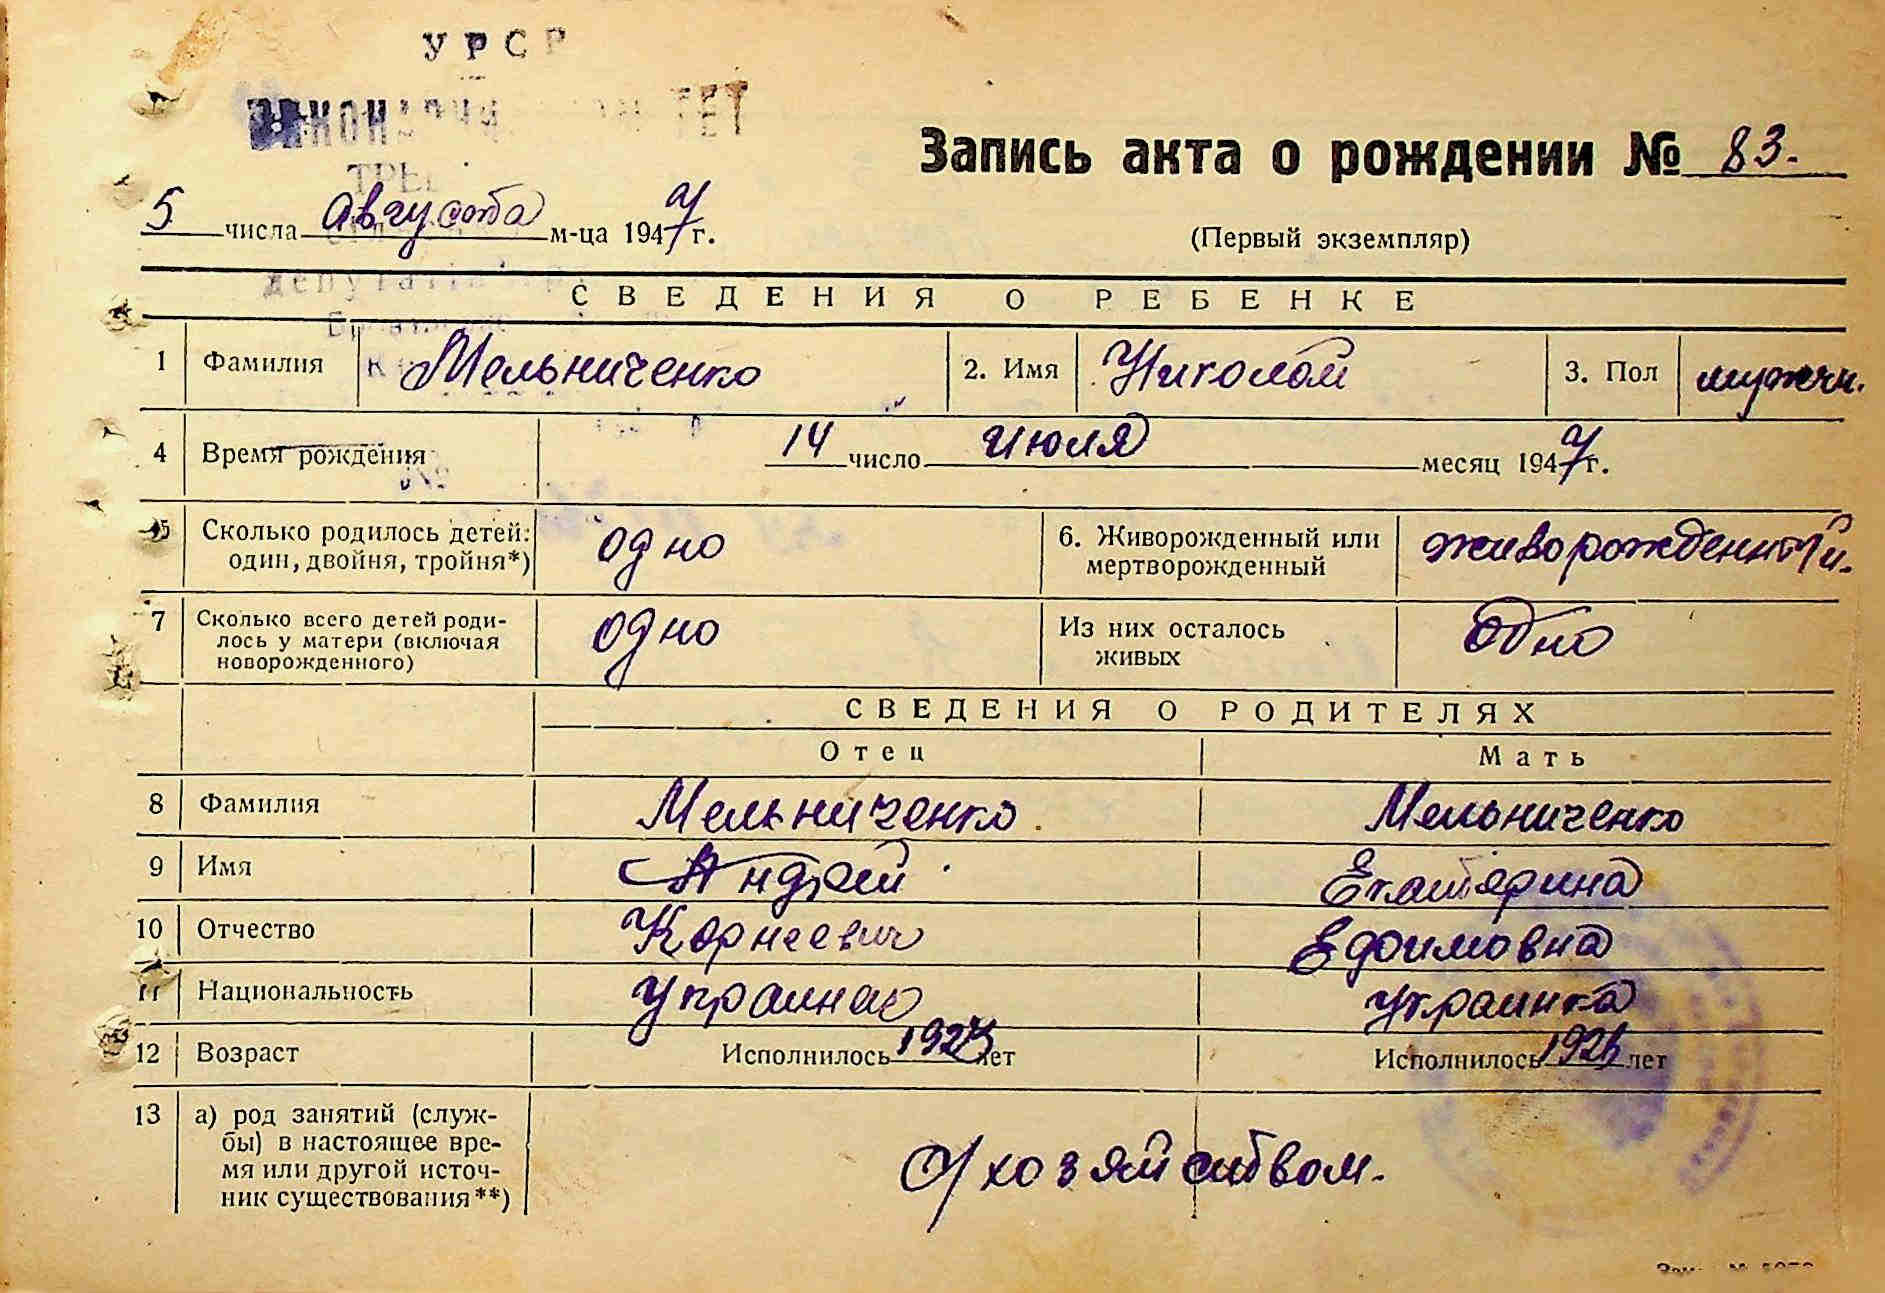 УРСР
Запись акта о рождении № 83.
5 числа августа м-ца 1947 г.
(Первый экземпляр)
СВЕДЕНИЯ О РЕБЕНКЕ
1 Фамилия Мельниченко 2. Имя Николай 3. Пол мужчи.
4 Время рождения 14 число июля месяц 1947 г.
№
5 Сколько родилось детей: один, двойня, тройня*) одно 6. Живорожденный или мертворожденный живорожденный.
7 Сколько всего детей роди-
лось у матери (включая
новорожденного) одно Из них осталось живых одно
СВЕДЕНИЯ О РОДИТЕЛЯХ
Отец Мать
8 Фамилия Мельниченко Мельниченко
9 Имя Андрей Екатерина
10 Отчество Корнеевич Ефимовна
11 Национальность Украинец Украинка
12 Возраст Исполнилось лет Исполнилось лет
13 а) род занятий (служ-
бы) в настоящее вре-
мя или другой источ-
ник существования**)
хозяйством.